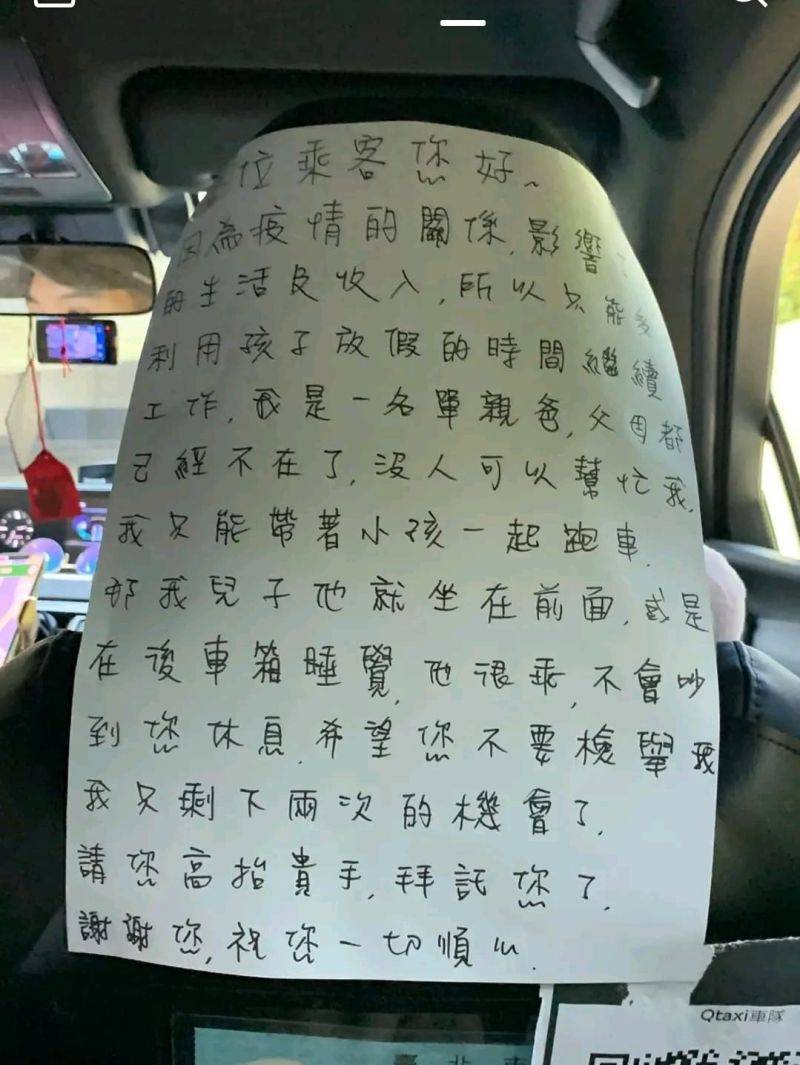 位乘客您好~
因為疫情的關係,影響
的生活及收入,所以只能多
利用孩子放假的時間繼續
工作,我是一名單親爸,父母都
已經不在了,沒人可以幫忙我,
我只能帶著小孩一起跑車.
那我兒子他就坐在前面,或是
在後車箱睡覺,他很乖,不會吵
到您休息,希望您不要檢舉我
我只剩下兩次的機會了,
請您高抬貴手,拜託您了,
謝謝您,祝您一切順心.
Qtaxi車隊